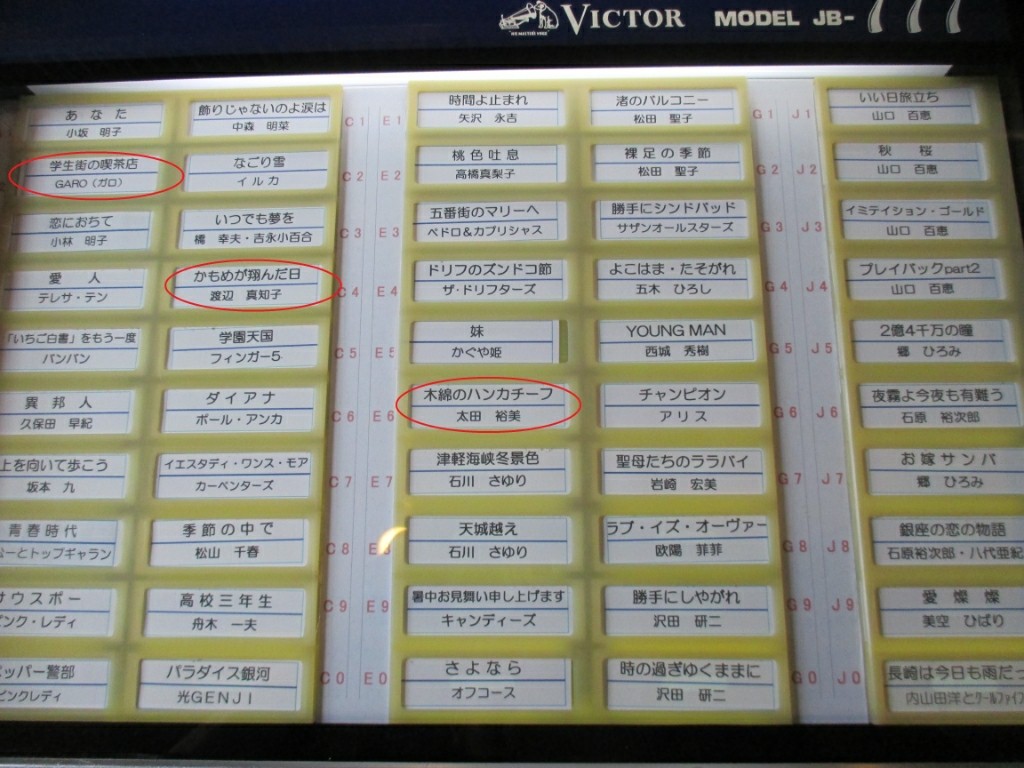 VICTOR MODEL JB-777
あなた
小坂 明子
学生街の喫茶店
GARO（ガロ）
恋におちて
小林 明子
愛人
テレサ・テン
「いちご白書」をもう一度
バンバン
異邦人
久保田 早紀
上を向いて歩こう
坂本 九
青春時代
ーとトップギャラン
サウスポー
ピンク・レディ
ペッパー警部
ピンクレディ
飾りじゃないのよ涙は
中森 明菜
なごり雪
イルカ
いつでも夢を
橋 幸夫・吉永小百合
かもめが翔んだ日
渡辺 真知子
学園天国
フィンガー5
ダイアナ
ポール・アンカ
イエスタディ・ワンス・モア
カーペンターズ
季節の中で
松山 千春
高校三年生
舟木 一夫
パラダイス銀河
光GENJI
C1 E1
C2 E2
C3 E3
C4 E4
C5 E5
C6 E6
C7 E7
C8 E8
C9 E9
C0 E0
時間よ止まれ
矢沢 永吉
桃色吐息
高橋真梨子
五番街のマリーへ
ペドロ＆カプリシャス
ドリフのズンドコ節
ザ・ドリフターズ
妹
かぐや姫
木綿のハンカチーフ
太田 裕美
津軽海峡冬景色
石川 さゆり
天城越え
石川 さゆり
暑中お見舞い申し上げます
キャンディーズ
さよなら
オフコース
渚のバルコニー
松田 聖子
裸足の季節
松田 聖子
勝手にシンドバッド
サザンオールスターズ
よこはま・たそがれ
五木 ひろし
YOUNG MAN
西城 秀樹
チャンピオン
アリス
聖母たちのララバイ
岩崎 宏美
ラブ・イズ・オーヴァー
欧陽 菲菲
勝手にしやがれ
沢田 研二
時の過ぎゆくままに
沢田 研二
G1 J1
G2 J2
G3 J3
G4 J4
G5 J5
G6 J6
G7 J7
G8 J8
G9 J9
G0 J0
いい日旅立ち
山口 百恵
秋桜
山口 百恵
イミテイション・ゴールド
山口 百恵
プレイバックpart2
山口 百恵
2億4千万の瞳
郷 ひろみ
夜霧よ今夜も有難う
石原 裕次郎
お嫁サンバ
郷 ひろみ
銀座の恋の物語
石原裕次郎・八代亜紀
愛燦燦
美空 ひばり
長崎は今日も雨だっ
内山田洋とクールファイブ